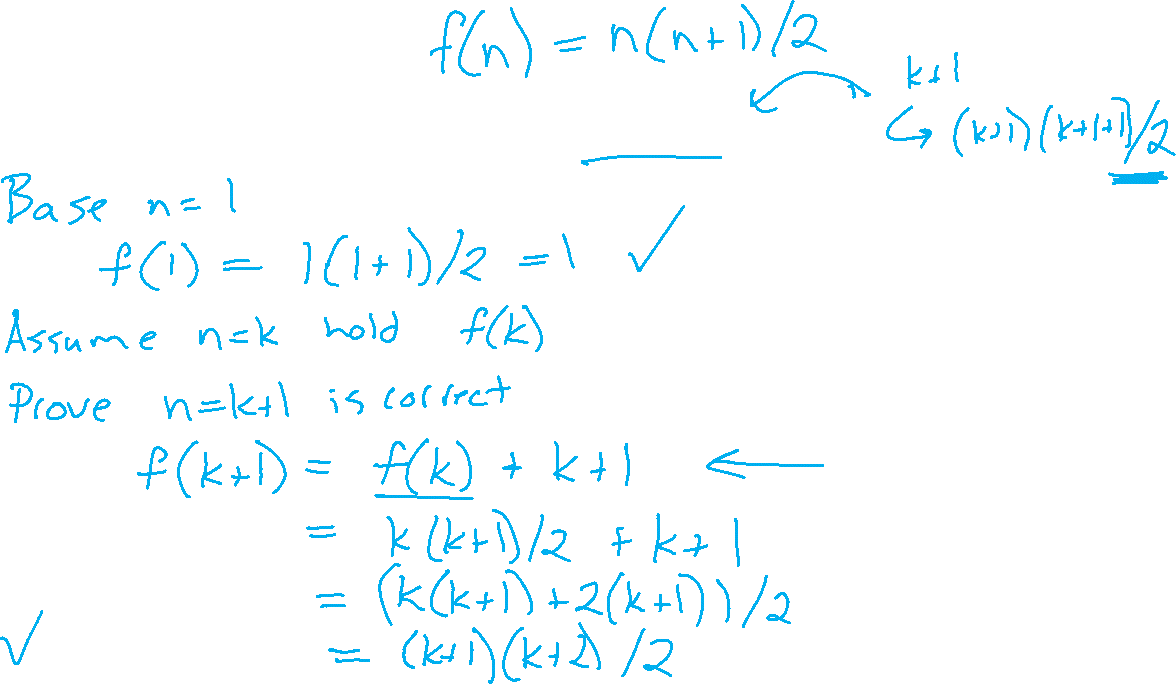 f(n) = n(n+1)/2
k+1
↪ (k+1)(k+1+1)/2
Base n=1
f(1) = 1(1+1)/2 = 1 ✓
Assume n=k hold f(k)
Prove n=k+1 is correct
f(k+1) = f(k) + k+1 ←
= k(k+1)/2 + k+1
= (k(k+1)+2(k+1))/2
✓ = (k+1)(k+2)/2